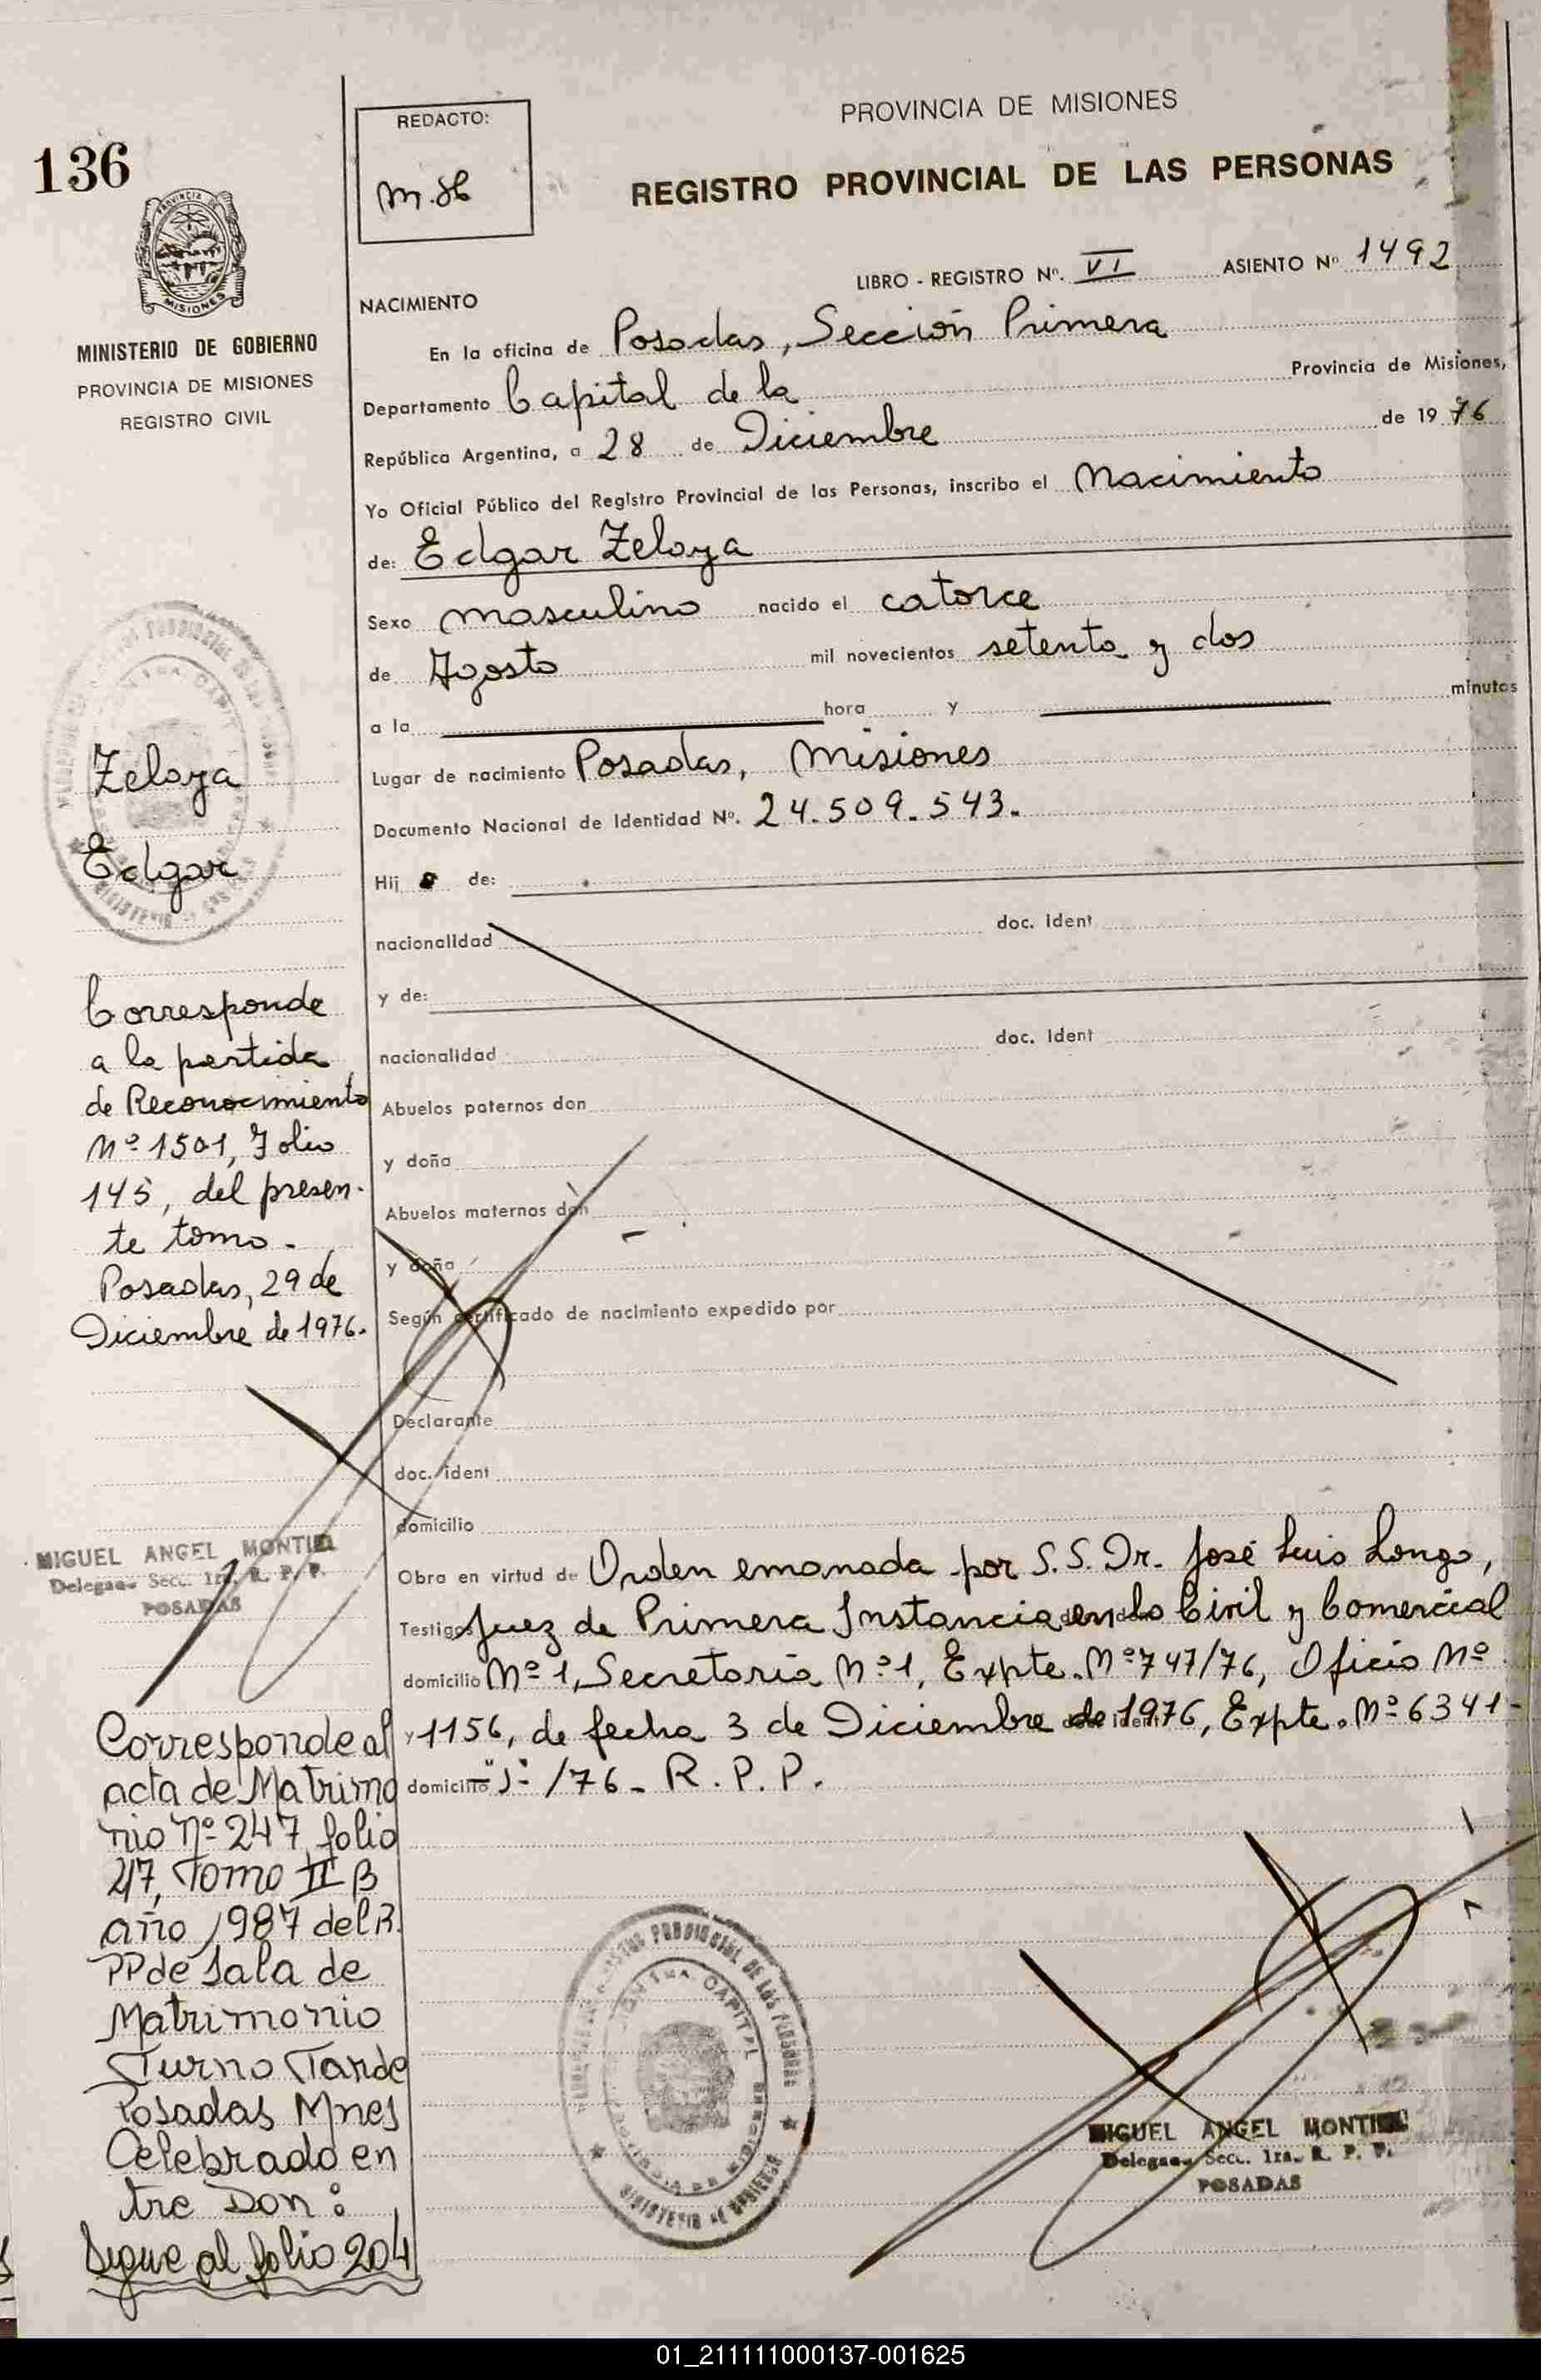 136
REDACTO:
PROVINCIA DE MISIONES
REGISTRO PROVINCIAL DE LAS PERSONAS
LIBRO - REGISTRO Nº. VI ASIENTO Nº 1492
MISIONES
MINISTERIO DE GOBIERNO
PROVINCIA DE MISIONES
REGISTRO CIVIL
NACIMIENTO
En la oficina de Posadas, Sección Primera
Departamento Capital de la Provincia de Misiones,
República Argentina, a 28 de Diciembre de 1976
Yo Oficial Público del Registro Provincial de las Personas, inscribo el Nacimiento
de: Edgar Zeloya
Sexo masculino nacido el catorce
de Agosto mil novecientos setenta y dos
a la hora y minutos
Lugar de nacimiento Posadas, Misiones
Documento Nacional de Identidad Nº. 24.509.543.
Hijo de:
nacionalidad doc. ident
y de:
nacionalidad doc. ident
Abuelos paternos don
y doña
Abuelos maternos don
y doña
Según certificado de nacimiento expedido por
Declarante
doc. ident
domicilio
Obra en virtud de Orden emanada por S.S. Dr. José Luis Longo,
Testigos Juez de Primera Instancia en lo Civil y Comercial
domicilio Nº 1, Secretoria Nº 1, Expte. Nº 747/76, Oficio Nº
y 1156, de fecha 3 de Diciembre de 1976, Expte. Nº 6341-
domicilio /76- R.P.P.
Zeloya
Edgar
Corresponde
a la partida
de Reconocimiento
Nº 1501, Folio
145, del presen-
te tomo.
Posadas, 29 de
Diciembre de 1976.
MIGUEL ANGEL MONTIEL
Delegado Secc. 1ra. R. P. P.
POSADAS
Corresponde al
acta de Matrimo
nio Nº 247 folio
47, Tomo II B
año 1987 del R.
PP de Sala de
Matrimonio
Turno Tarde
Posadas Mnes
Celebrado en
tre Don:
Segue al folio 204
MIGUEL ANGEL MONTIEL
Delegado Secc. 1ra. R. P. P.
POSADAS
01_211111000137-001625